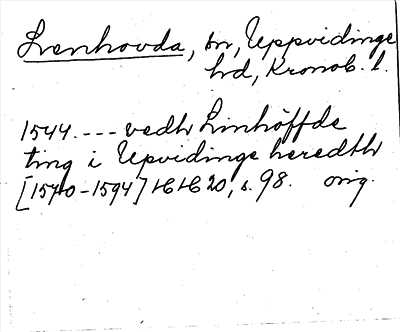 Lenhovda, sn, Uppvidinge
hd, Kronob. l.
1544. ---- vedh Linhöffde
ting i Upvidinge heredth
[1570-1594] HH 20, s. 98. orig.